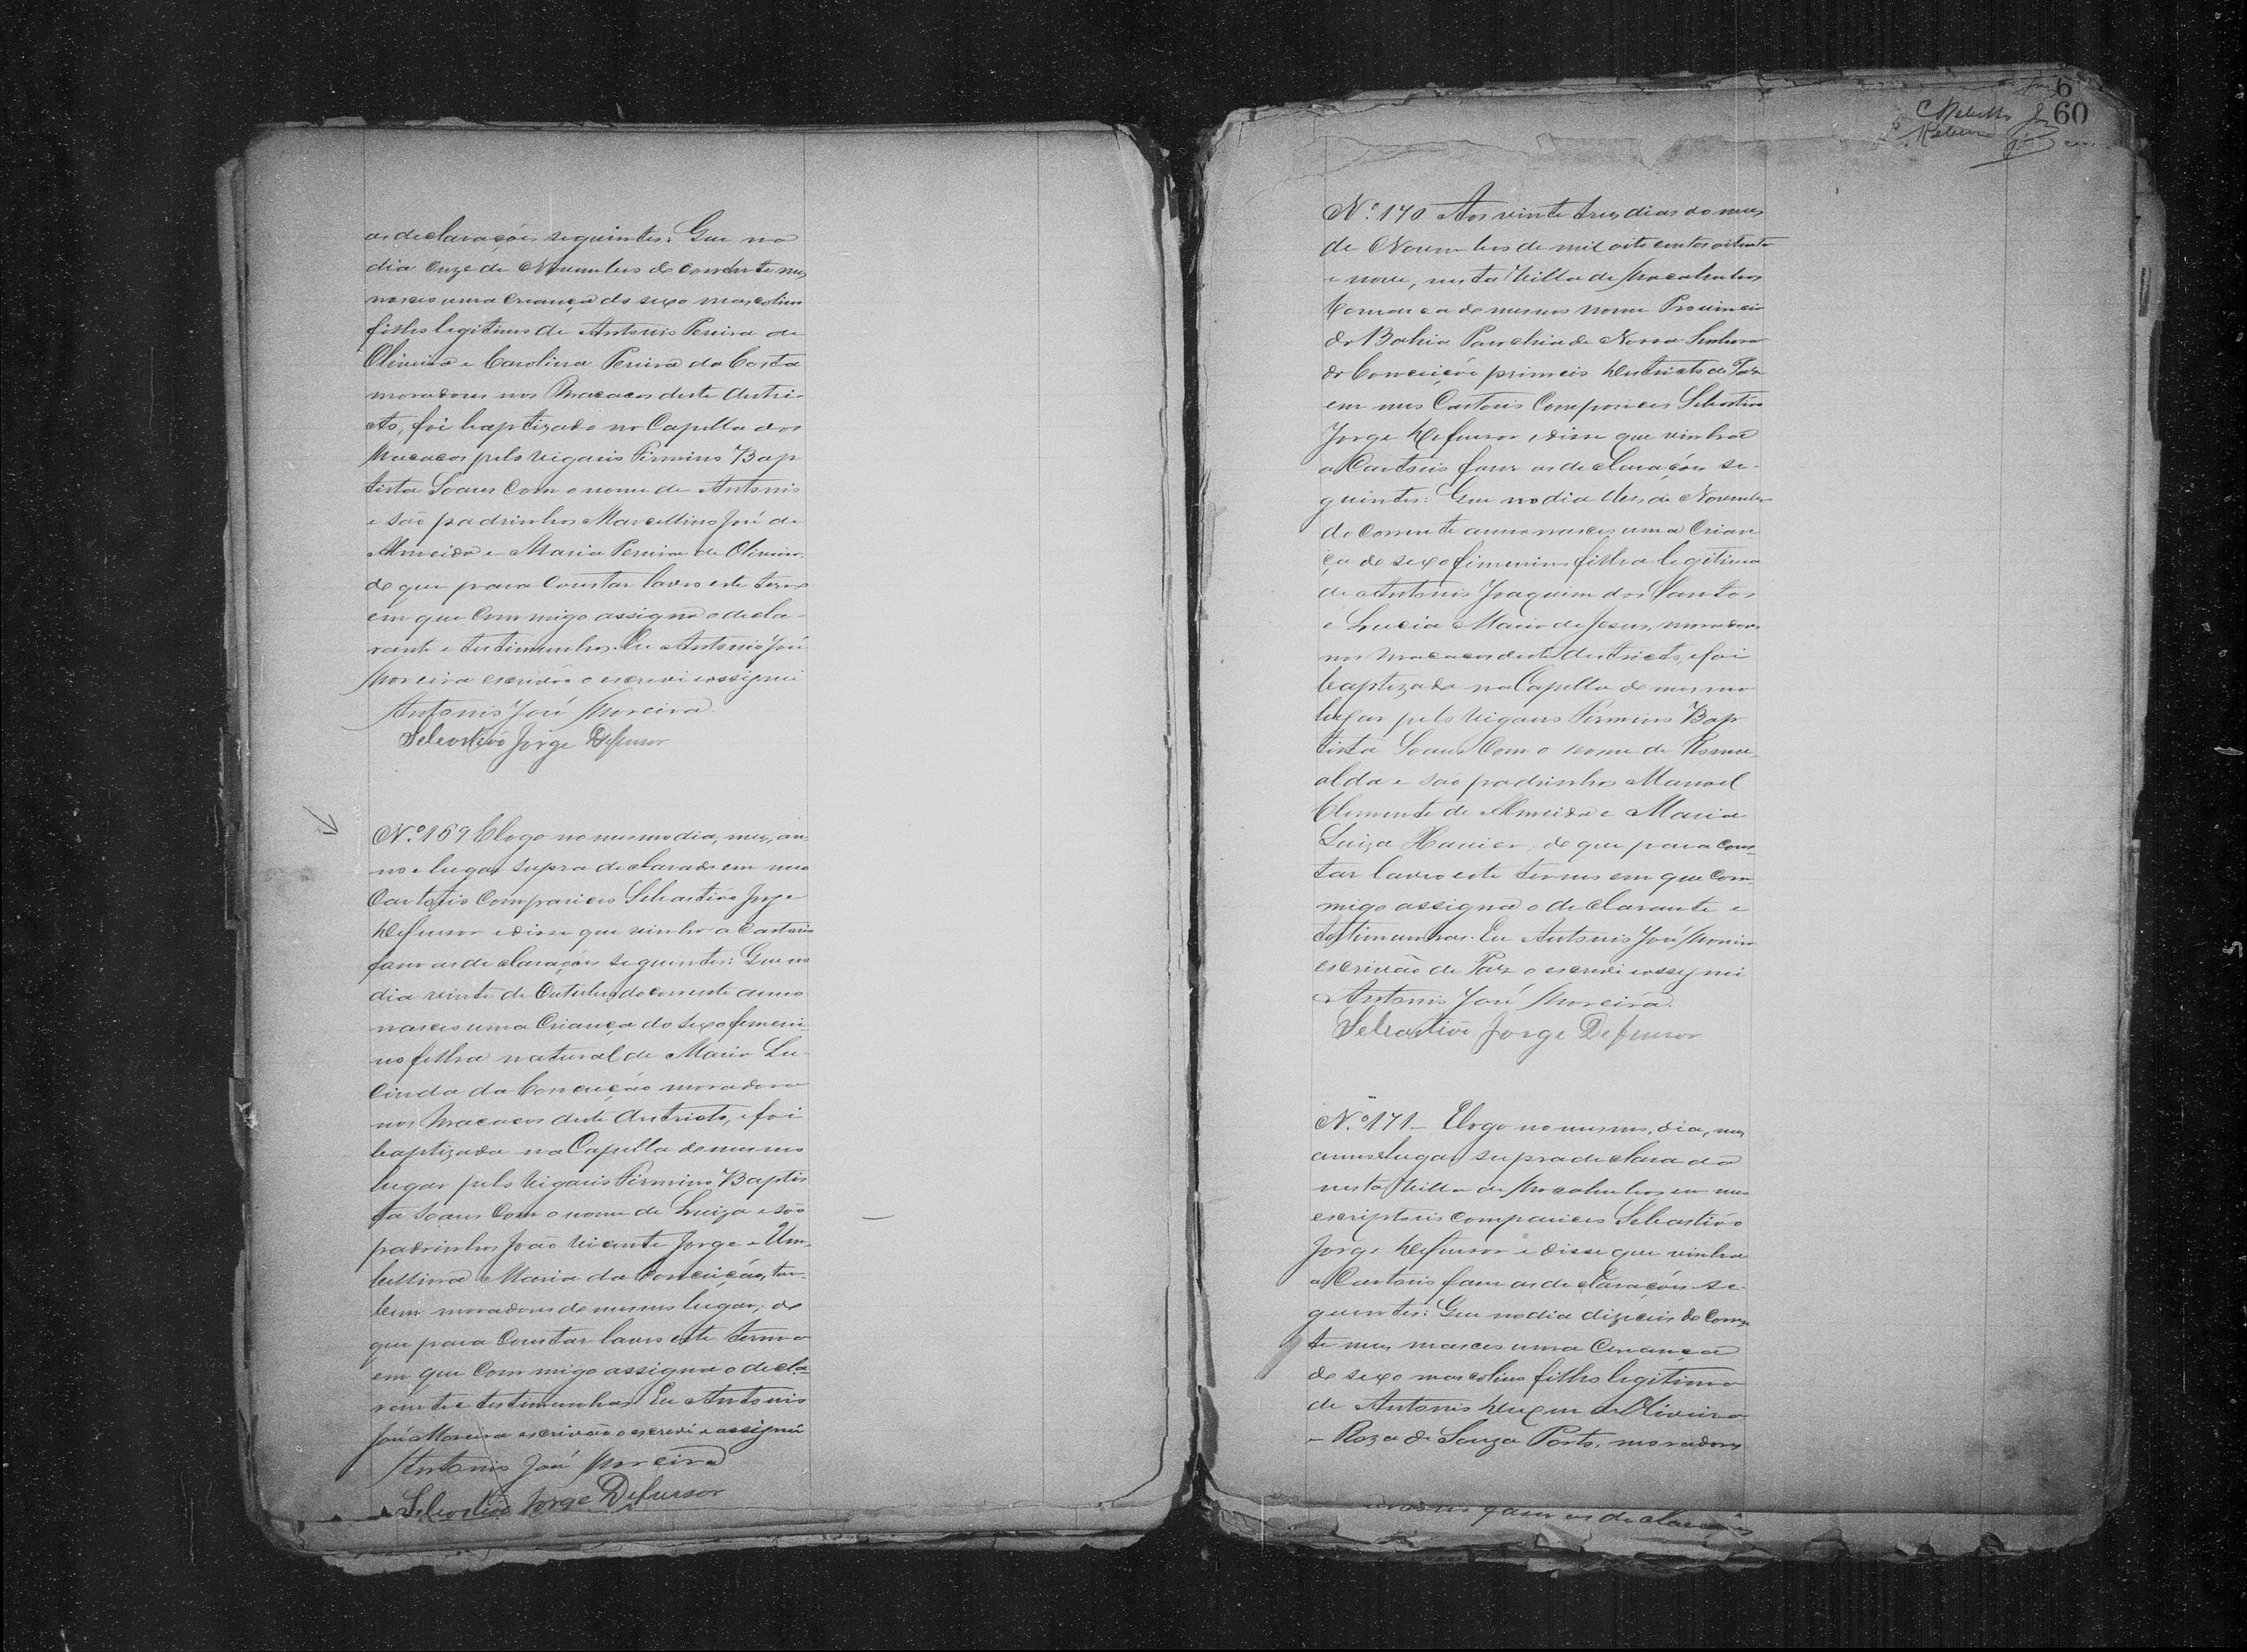 as declarações seguintes: Que no
dia Onze de Novembro do Corrente mes
nasceo uma Criança do sexo mascolino
filho legitimo de Antonio Pereira de
Oliveira e Carolina Pereira da Costa
moradores nos Macacos deste destri-
cto, foi baptizado na Capella dos
Macacos pelo Vigario Firmino Bap
tista Soares Com o nome de Antonio
e são padrinhos Marcellino José de
Almeida e Maria Pereira de Oliveira.
de que para Constar lavro este termo
em que Commigo assigna o decla-
rante e testimunhas. Eu Antonio José
Moreira escrivão o escrevi e assignei
Antonio José Moreira.
Sebastião Jorge Defensor
Nº 169 E logo no mesmo dia, mes, an-
no e lugar supra declarado em meo
Cartorio Compareceo Sebastião Jorge
Defensor e disse que vinha a Cartorio
fazer as declarações seguintes: Que no
dia vinte de Outubro do corrente anno
nasceo uma Criança do sexo femeni-
no filha natural de Maria Lu-
cinda da Conceição moradora
nos Macacos deste destricto, e foi
baptizada na Capella do mesmo
lugar pelo Vigario Firmino Baptis
ta Soares Com o nome de Luiza e são
padrinhos João Vicente Jorge e Um-
bellina Maria da Conceição, tam-
bem moradores do mesmo lugar; do
que para Constar lavro este termo
em que Commigo assigna o decla-
rante e testimunhas. Eu Antonio
José Moreira escrivão o escrevi e assignei
Antonio José Moreira
Sebastião Jorge Defensor
6
60
Nº 170 Aos vinte tres dias do mes
de Novembro de mil oito centos oitenta
e nove, nesta Villa de Macahubas
Comarca do mesmo nome Provincia
da Bahia Parochia de Nossa Senhora
da Conceição primeiro destricto de Paz
em meo Cartorio Compareceo Sebastião
Jorge Defensor e disse que vinha
a Cartorio fazer as declarações se-
guintes: Que no dia des de Novembro
do Corrente anno nasceo uma Crian
ça do sexo fimenino filha legitima
de Antonio Joaquim dos Santos
e Lucia Maria de Jesus, moradores
nos Macacos deste destricto, e foi
baptizada na Capella do mesmo
lugar pelo Vigario Firmino Bap
tista Soares Com o nome de Romu-
alda e são padrinhos Manoel
Clemente de Almeida e Maria
Luiza Xavier, do que para Cons-
tar lavro este termo em que Com-
migo assigna o declarante e
testimunhas. Eu Antonio José Moreira
escrivão de Paz o escrevi e assignei
Antonio José Moreira.
Sebastião Jorge Defensor
Nº 171 – E logo no mesmo, dia, mes
anno e lugar supra declarado
nesta Villa de Macahubas em meo
escriptorio compareceo Sebastião
Jorge Defensor e disse que vinha
a Cartorio fazer as declarações se-
guintes: Que no dia dizeseis do Corren
te mes nasceo uma Criança
do sexo mascolino filho legitimo
de Antonio de Oliveira
e Roza de Souza Porto, moradores
fazer as declarações